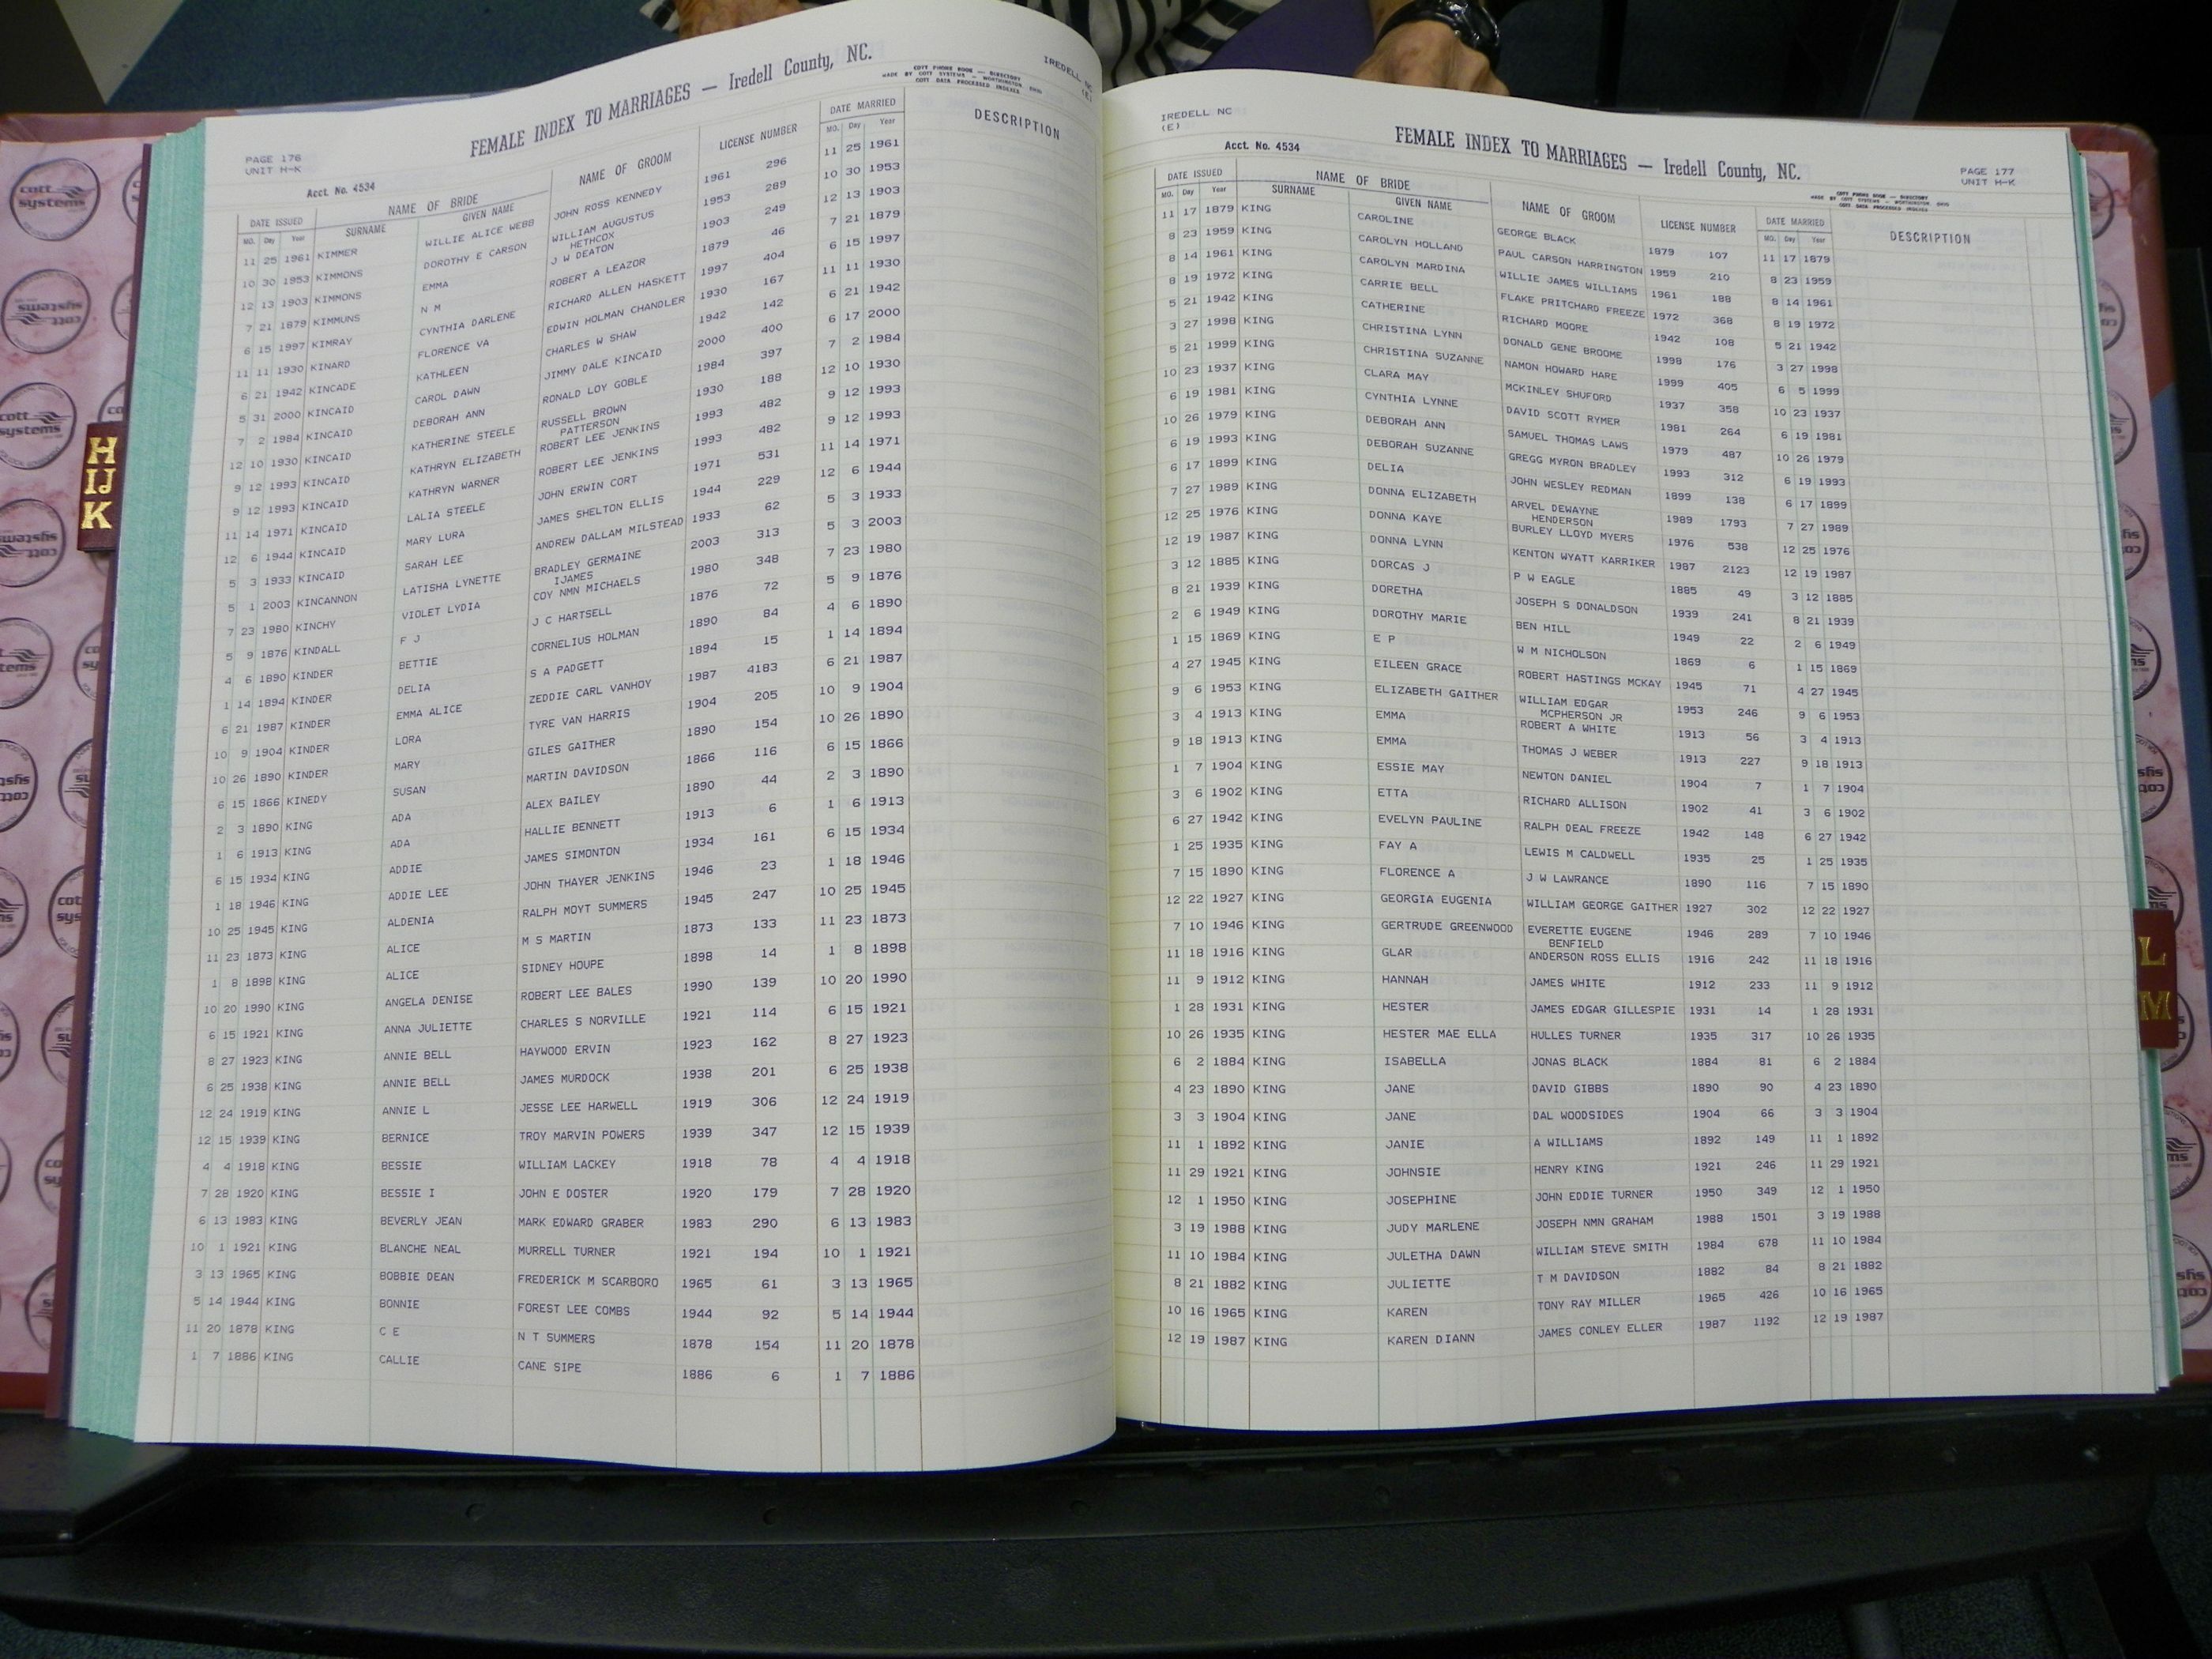 IREDELL NC
(E)
COTT PHONE BOOK — DIRECTORY
MADE BY COTT SYSTEMS — WORTHINGTON, OHIO
COTT DATA PROCESSED INDEXES
FEMALE INDEX TO MARRIAGES — Iredell County, NC.
PAGE 176
UNIT H-K
Acct. No. 4534
DATE ISSUED NAME OF BRIDE NAME OF GROOM LICENSE NUMBER DATE MARRIED DESCRIPTION
MO. Day Year SURNAME GIVEN NAME MO. Day Year
11 25 1961 KIMMER WILLIE ALICE WEBB JOHN ROSS KENNEDY 1961 296 11 25 1961
10 30 1953 KIMMONS DOROTHY E CARSON WILLIAM AUGUSTUS 1953 289 10 30 1953
HETHCOX
12 13 1903 KIMMONS EMMA J W DEATON 1903 249 12 13 1903
7 21 1879 KIMMUNS N M ROBERT A LEAZOR 1879 46 7 21 1879
6 15 1997 KIMRAY CYNTHIA DARLENE RICHARD ALLEN HASKETT 1997 404 6 15 1997
11 11 1930 KINARD FLORENCE VA EDWIN HOLMAN CHANDLER 1930 167 11 11 1930
6 21 1942 KINCADE KATHLEEN CHARLES W SHAW 1942 142 6 21 1942
5 31 2000 KINCAID CAROL DAWN JIMMY DALE KINCAID 2000 400 6 17 2000
7 2 1984 KINCAID DEBORAH ANN RONALD LOY GOBLE 1984 397 7 2 1984
12 10 1930 KINCAID KATHERINE STEELE RUSSELL BROWN 1930 188 12 10 1930
PATTERSON
9 12 1993 KINCAID KATHRYN ELIZABETH ROBERT LEE JENKINS 1993 482 9 12 1993
9 12 1993 KINCAID KATHRYN WARNER ROBERT LEE JENKINS 1993 482 9 12 1993
11 14 1971 KINCAID LALIA STEELE JOHN ERWIN CORT 1971 531 11 14 1971
12 6 1944 KINCAID MARY LURA JAMES SHELTON ELLIS 1944 229 12 6 1944
5 3 1933 KINCAID SARAH LEE ANDREW DALLAM MILSTEAD 1933 62 5 3 1933
5 1 2003 KINCANNON LATISHA LYNETTE BRADLEY GERMAINE 2003 313 5 3 2003
IJAMES
7 23 1980 KINCHY VIOLET LYDIA COY NMN MICHAELS 1980 348 7 23 1980
5 9 1876 KINDALL F J J C HARTSELL 1876 72 5 9 1876
4 6 1890 KINDER BETTIE CORNELIUS HOLMAN 1890 84 4 6 1890
1 14 1894 KINDER DELIA S A PADGETT 1894 15 1 14 1894
6 21 1987 KINDER EMMA ALICE ZEDDIE CARL VANHOY 1987 4183 6 21 1987
10 9 1904 KINDER LORA TYRE VAN HARRIS 1904 205 10 9 1904
10 26 1890 KINDER MARY GILES GAITHER 1890 154 10 26 1890
6 15 1866 KINEDY SUSAN MARTIN DAVIDSON 1866 116 6 15 1866
2 3 1890 KING ADA ALEX BAILEY 1890 44 2 3 1890
1 6 1913 KING ADA HALLIE BENNETT 1913 6 1 6 1913
6 15 1934 KING ADDIE JAMES SIMONTON 1934 161 6 15 1934
1 18 1946 KING ADDIE LEE JOHN THAYER JENKINS 1946 23 1 18 1946
10 25 1945 KING ALDENIA RALPH MOYT SUMMERS 1945 247 10 25 1945
11 23 1873 KING ALICE M S MARTIN 1873 133 11 23 1873
1 8 1898 KING ALICE SIDNEY HOUPE 1898 14 1 8 1898
10 20 1990 KING ANGELA DENISE ROBERT LEE BALES 1990 139 10 20 1990
6 15 1921 KING ANNA JULIETTE CHARLES S NORVILLE 1921 114 6 15 1921
8 27 1923 KING ANNIE BELL HAYWOOD ERVIN 1923 162 8 27 1923
6 25 1938 KING ANNIE BELL JAMES MURDOCK 1938 201 6 25 1938
12 24 1919 KING ANNIE L JESSE LEE HARWELL 1919 306 12 24 1919
12 15 1939 KING BERNICE TROY MARVIN POWERS 1939 347 12 15 1939
4 4 1918 KING BESSIE WILLIAM LACKEY 1918 78 4 4 1918
7 28 1920 KING BESSIE I JOHN E DOSTER 1920 179 7 28 1920
6 13 1983 KING BEVERLY JEAN MARK EDWARD GRABER 1983 290 6 13 1983
10 1 1921 KING BLANCHE NEAL MURRELL TURNER 1921 194 10 1 1921
3 13 1965 KING BOBBIE DEAN FREDERICK M SCARBORO 1965 61 3 13 1965
5 14 1944 KING BONNIE FOREST LEE COMBS 1944 92 5 14 1944
11 20 1878 KING C E N T SUMMERS 1878 154 11 20 1878
1 7 1886 KING CALLIE CANE SIPE 1886 6 1 7 1886
IREDELL NC
(E)
Acct. No. 4534
FEMALE INDEX TO MARRIAGES — Iredell County, NC.
PAGE 177
UNIT H-K
COTT PHONE BOOK — DIRECTORY
MADE BY COTT SYSTEMS — WORTHINGTON, OHIO
COTT DATA PROCESSED INDEXES
DATE ISSUED NAME OF BRIDE NAME OF GROOM LICENSE NUMBER DATE MARRIED DESCRIPTION
MO. Day Year SURNAME GIVEN NAME MO. Day Year
11 17 1879 KING CAROLINE GEORGE BLACK 1879 107 11 17 1879
8 23 1959 KING CAROLYN HOLLAND PAUL CARSON HARRINGTON 1959 210 8 23 1959
8 14 1961 KING CAROLYN MARDINA WILLIE JAMES WILLIAMS 1961 188 8 14 1961
8 19 1972 KING CARRIE BELL FLAKE PRITCHARD FREEZE 1972 368 8 19 1972
5 21 1942 KING CATHERINE RICHARD MOORE 1942 108 5 21 1942
3 27 1998 KING CHRISTINA LYNN DONALD GENE BROOME 1998 176 3 27 1998
5 21 1999 KING CHRISTINA SUZANNE NAMON HOWARD HARE 1999 405 6 5 1999
10 23 1937 KING CLARA MAY MCKINLEY SHUFORD 1937 358 10 23 1937
6 19 1981 KING CYNTHIA LYNNE DAVID SCOTT RYMER 1981 264 6 19 1981
10 26 1979 KING DEBORAH ANN SAMUEL THOMAS LAWS 1979 487 10 26 1979
6 19 1993 KING DEBORAH SUZANNE GREGG MYRON BRADLEY 1993 312 6 19 1993
6 17 1899 KING DELIA JOHN WESLEY REDMAN 1899 138 6 17 1899
7 27 1989 KING DONNA ELIZABETH ARVEL DEWAYNE 1989 1793 7 27 1989
HENDERSON
12 25 1976 KING DONNA KAYE BURLEY LLOYD MYERS 1976 538 12 25 1976
12 19 1987 KING DONNA LYNN KENTON WYATT KARRIKER 1987 2123 12 19 1987
3 12 1885 KING DORCAS J P W EAGLE 1885 49 3 12 1885
8 21 1939 KING DORETHA JOSEPH S DONALDSON 1939 241 8 21 1939
2 6 1949 KING DOROTHY MARIE BEN HILL 1949 22 2 6 1949
1 15 1869 KING E P W M NICHOLSON 1869 6 1 15 1869
4 27 1945 KING EILEEN GRACE ROBERT HASTINGS MCKAY 1945 71 4 27 1945
9 6 1953 KING ELIZABETH GAITHER WILLIAM EDGAR 1953 246 9 6 1953
MCPHERSON JR
3 4 1913 KING EMMA ROBERT A WHITE 1913 56 3 4 1913
9 18 1913 KING EMMA THOMAS J WEBER 1913 227 9 18 1913
1 7 1904 KING ESSIE MAY NEWTON DANIEL 1904 7 1 7 1904
3 6 1902 KING ETTA RICHARD ALLISON 1902 41 3 6 1902
6 27 1942 KING EVELYN PAULINE RALPH DEAL FREEZE 1942 148 6 27 1942
1 25 1935 KING FAY A LEWIS M CALDWELL 1935 25 1 25 1935
7 15 1890 KING FLORENCE A J W LAWRANCE 1890 116 7 15 1890
12 22 1927 KING GEORGIA EUGENIA WILLIAM GEORGE GAITHER 1927 302 12 22 1927
7 10 1946 KING GERTRUDE GREENWOOD EVERETTE EUGENE 1946 289 7 10 1946
BENFIELD
11 18 1916 KING GLAR ANDERSON ROSS ELLIS 1916 242 11 18 1916
11 9 1912 KING HANNAH JAMES WHITE 1912 233 11 9 1912
1 28 1931 KING HESTER JAMES EDGAR GILLESPIE 1931 14 1 28 1931
10 26 1935 KING HESTER MAE ELLA HULLES TURNER 1935 317 10 26 1935
6 2 1884 KING ISABELLA JONAS BLACK 1884 81 6 2 1884
4 23 1890 KING JANE DAVID GIBBS 1890 90 4 23 1890
3 3 1904 KING JANE DAL WOODSIDES 1904 66 3 3 1904
11 1 1892 KING JANIE A WILLIAMS 1892 149 11 1 1892
11 29 1921 KING JOHNSIE HENRY KING 1921 246 11 29 1921
12 1 1950 KING JOSEPHINE JOHN EDDIE TURNER 1950 349 12 1 1950
3 19 1988 KING JUDY MARLENE JOSEPH NMN GRAHAM 1988 1501 3 19 1988
11 10 1984 KING JULETHA DAWN WILLIAM STEVE SMITH 1984 678 11 10 1984
8 21 1882 KING JULIETTE T M DAVIDSON 1882 84 8 21 1882
10 16 1965 KING KAREN TONY RAY MILLER 1965 426 10 16 1965
12 19 1987 KING KAREN DIANN JAMES CONLEY ELLER 1987 1192 12 19 1987
H
IJ
K
L
M
cott
systems